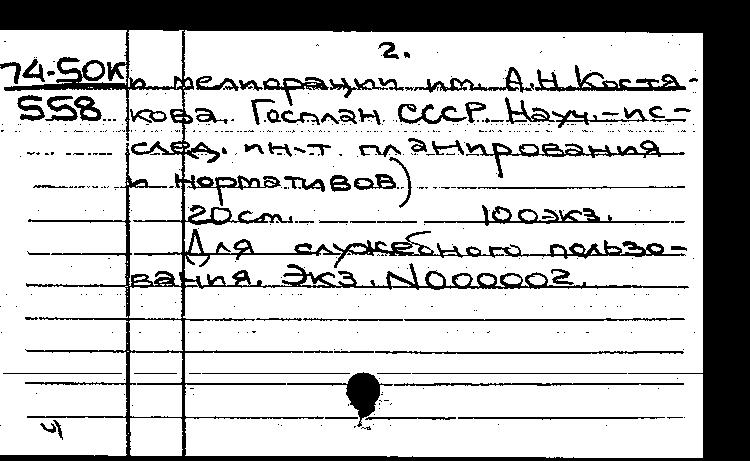 2.
74-50К и мелиорации им. А.Н.Костя-
558 кова. Госплан СССР. Науч.-ис-
след. ин-т планирования
и нормативов)
20 см. 100экз.
Для служебного пользо-
вания. Экз. N000002.